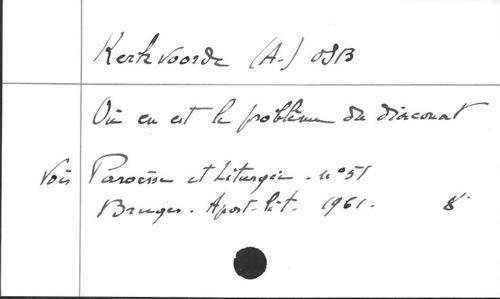 Kerkvoorde (A.) OSB
Où en est le problème du diaconat
Voir Paroisse et Liturgie. n° 51
Bruges. Apost. lit. 1961. 8°